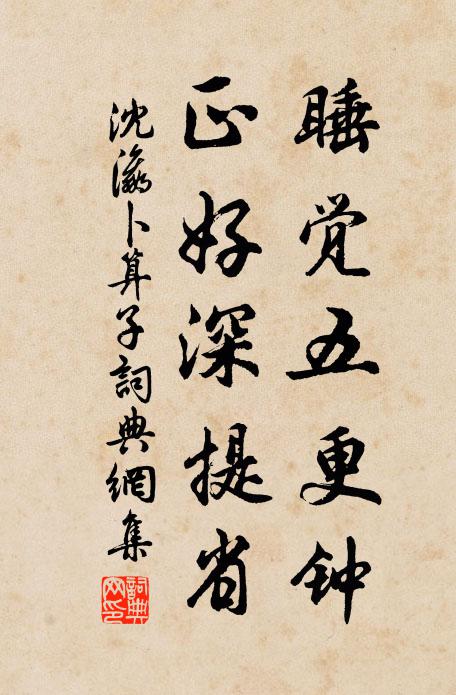 睡觉五更钟
正好深提省
沈瀛卜算子詞典網集
詞典网印